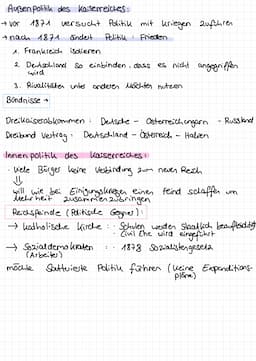 Außenpolitik des Kaiserreiches:
→ vor 1871 versucht Politik mit Kriegen zuführen
→ nach 1871 ändert Politik: Frieden
1. Frankreich isolieren
2. Deutschland so einbinden, dass es nicht angegriffen
wird
3. Rivalitäten unter anderen Mächten nutzen
Bündnisse →
Dreikaiserabkommen: Deutsche - Österreichungarn - Russland
Dreibund Vertrag: Deutschland - Österreich - Italien
Innenpolitik des Kaiserreiches:
· viele Bürger keine Verbindung zum neuen Reich
⇓
will wie bei Einigungskriegen einen Feind schaffen um
Mehrheit zusammenzubringen
Reichsfeinde (Politische Gegner):
→ katholische Kirche: · Schulen werden staatlich beaufsichtigt
· Civil Ehe wird eingeführt
→ Sozialdemokraten : · 1878 Sozialistengesetz
(Arbeiter)
möchte Saturierte Politik führen (keine Expanditions-
pläne)